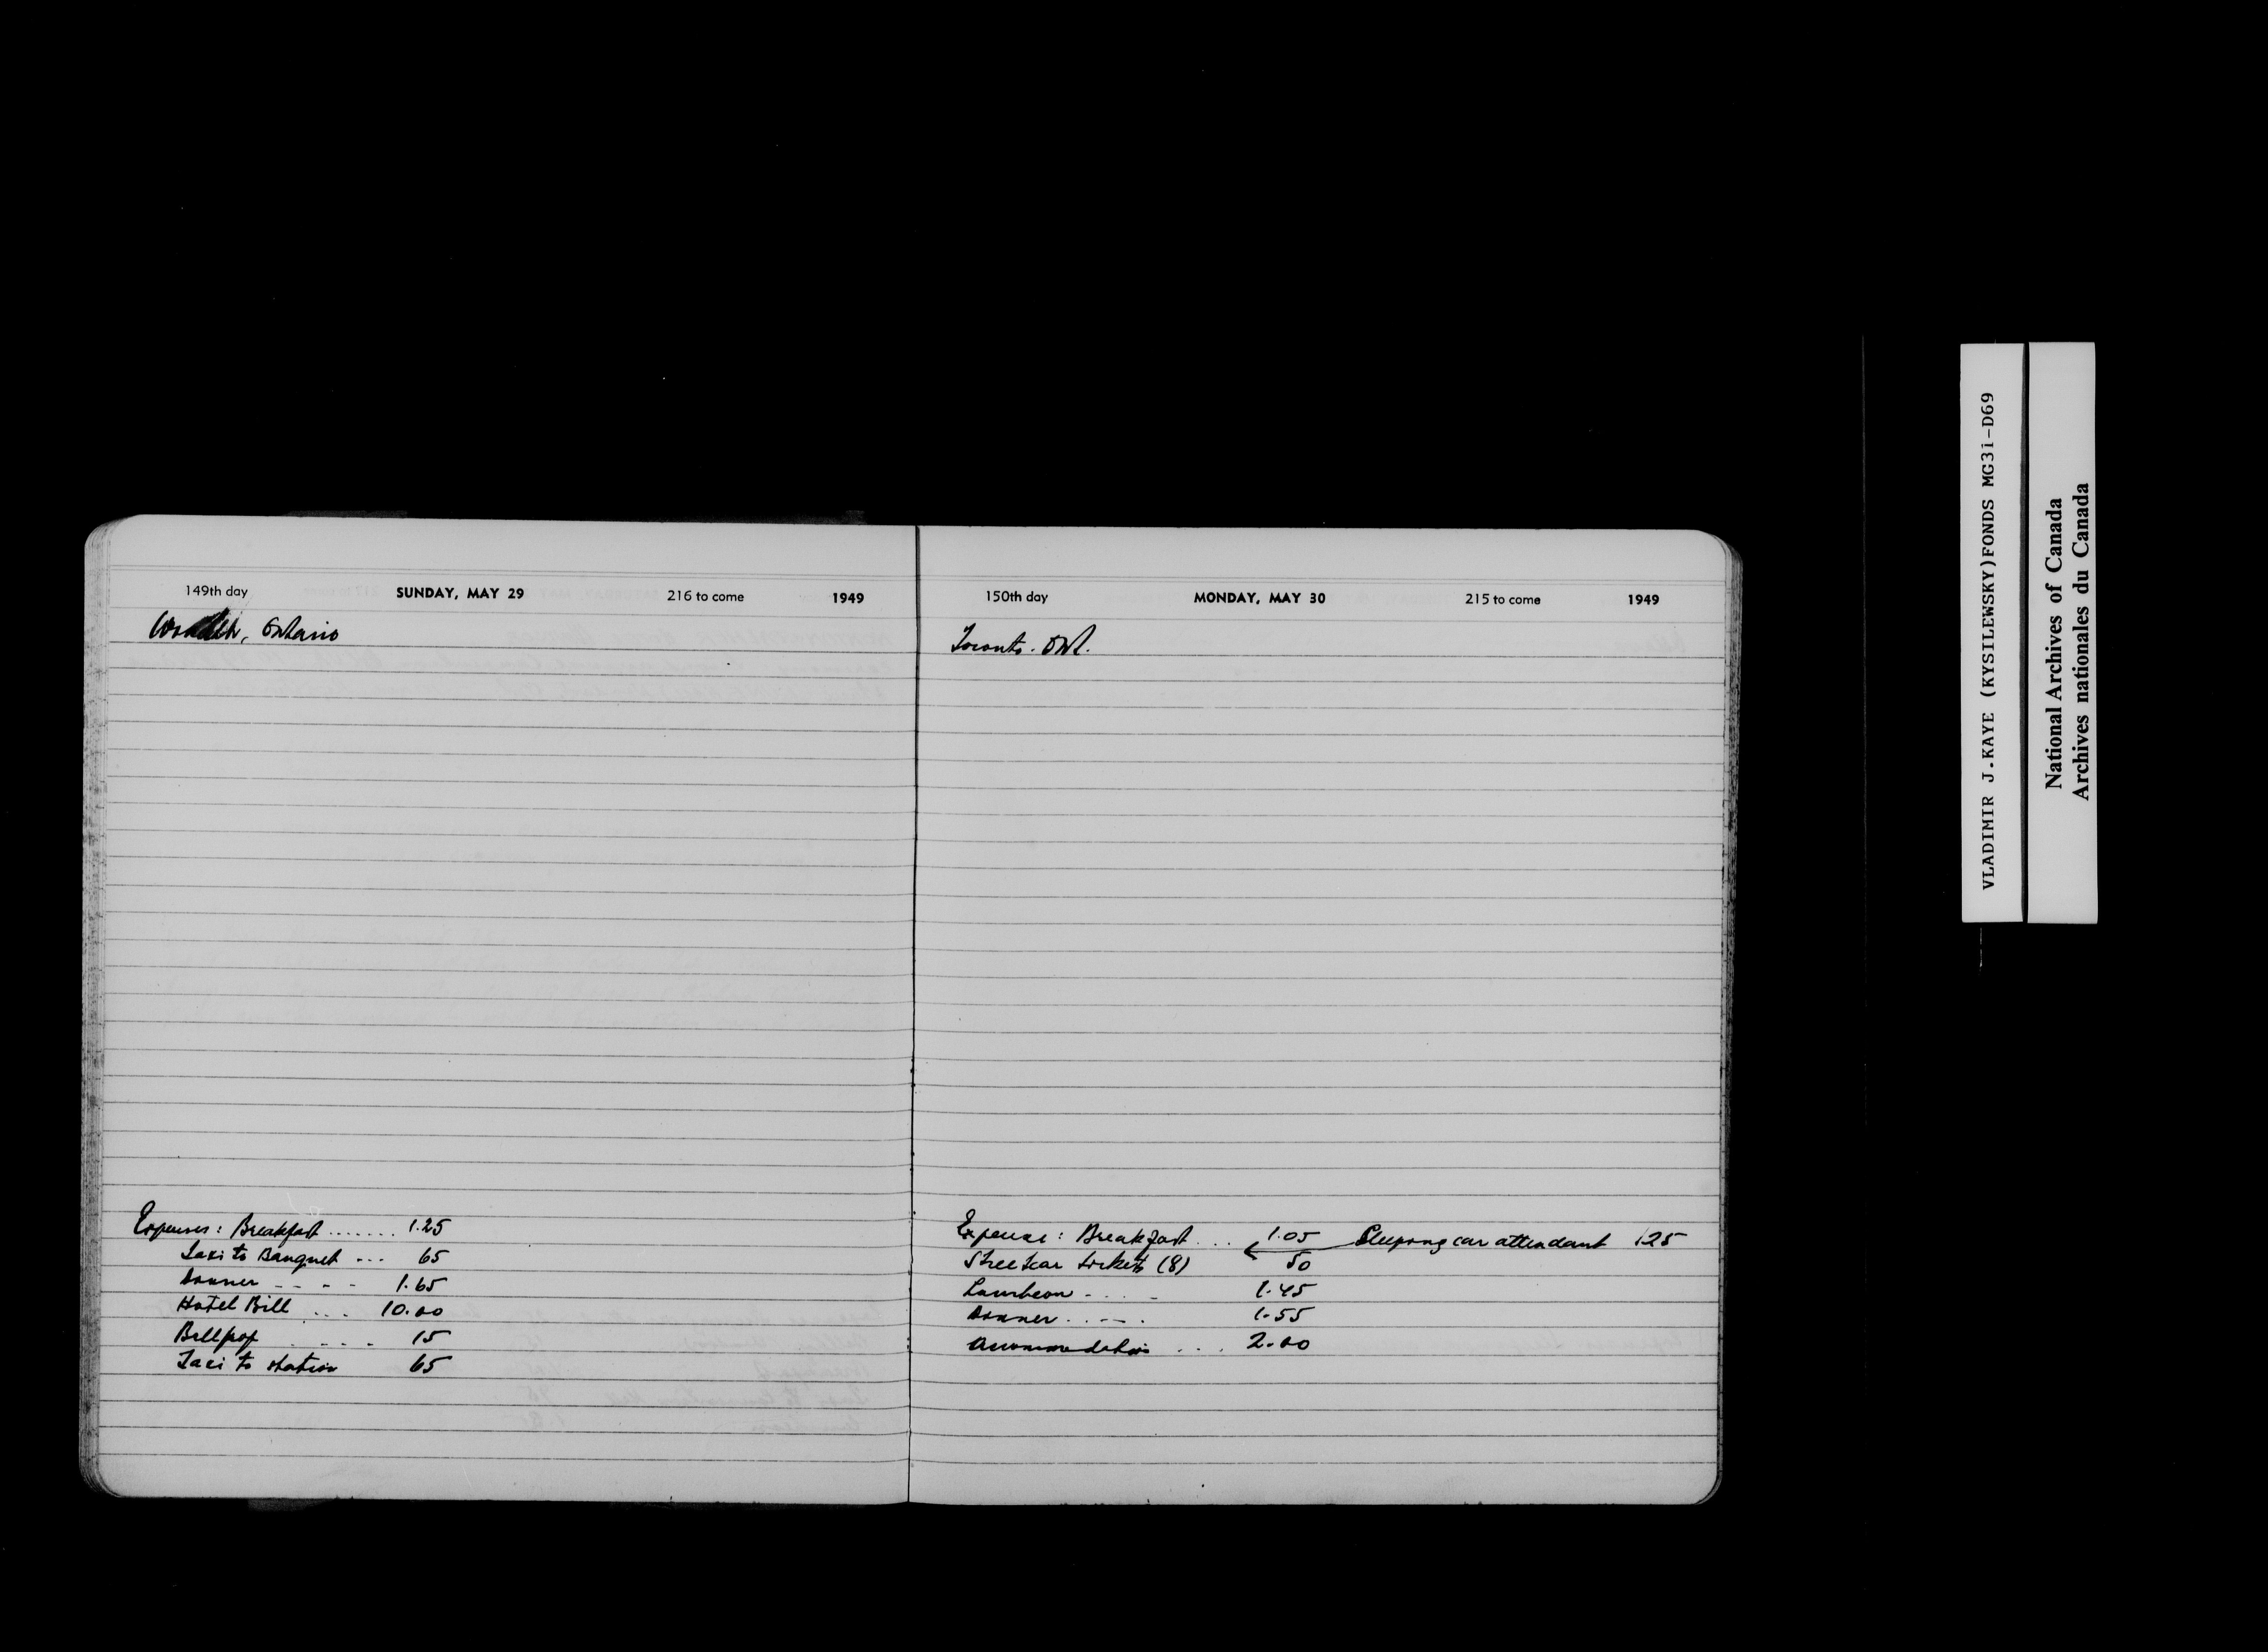 149th day SUNDAY, MAY 29 216 to come 1949
Ontario
Expenses: Breakfast ....... 1.25
Taxi to Banquet ... 65
Dinner - - - - 1.65
Hotel Bill .... 10.00
15
Taxi to station 65
150th day MONDAY, MAY 30 215 to come 1949
Toronto. Ont.
Expense: Breakfast ... 1.05 Sleeping car attendant 1.25
Streetcar tickets (8) 50
Luncheon - . . - 1.45
Dinner . . - - . 1.55
Accommodation .... 2.00
VLADIMIR J.KAYE (KYSILEWSKY)FONDS MG31-D69
National Archives of Canada
Archives nationales du Canada